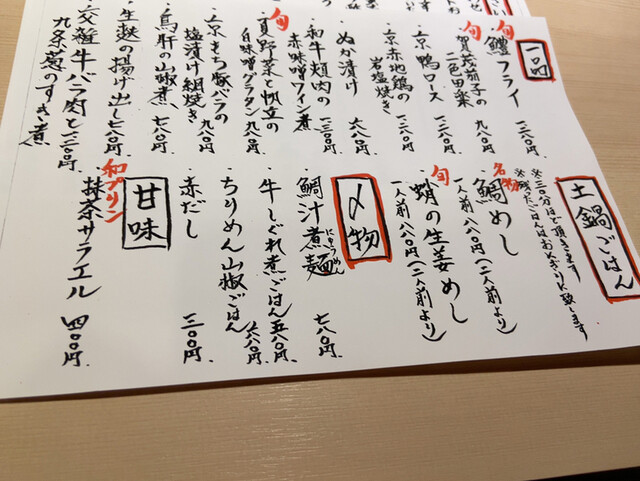 一品
旬
鱧フライ 一二八〇円
旬
賀茂茄子の
二色田楽 九八〇円
・京鴨ロース 一二八〇円
・京赤地鶏の
岩塩焼き 一二八〇円
・ぬか漬け 六八〇円
・和牛頬肉の
赤味噌ワイン煮 一三八〇円
旬
夏野菜と帆立の
白味噌グラタン 九八〇円
・京もち豚バラの
塩漬け網焼き 九八〇円
・鳥肝の山椒煮 七八〇円
・生麩の揚げ出し 七八〇円
・交雑牛バラ肉と
九条葱のすき煮 一二八〇円
土鍋ごはん
※三〇分ほど頂きます
※残ったごはんはおにぎりに致します
名物
鯛めし
一人前 八八〇円(二人前より)
旬
蛸の生姜めし
一人前 八八〇円(二人前より)
〆物
鯛汁煮麺 七八〇円
にゅうめん
牛しぐれ煮ごはん 五八〇円
ちりめん山椒ごはん
赤だし 三〇〇円
甘味
和プリン
抹茶サラエル 四〇〇円